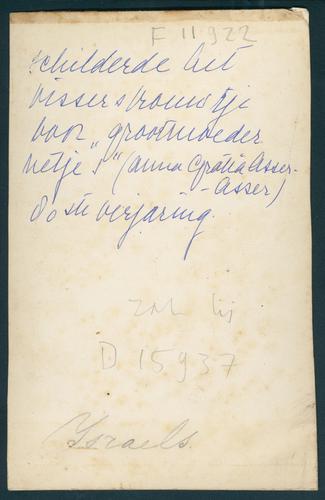 F 11922
schilderde het
vissersvrouwtje
voor "grootmoeder
netje's" (Anna Gratia Asser-
-Asser)
80ste verjaring.
D 15937
Israels.